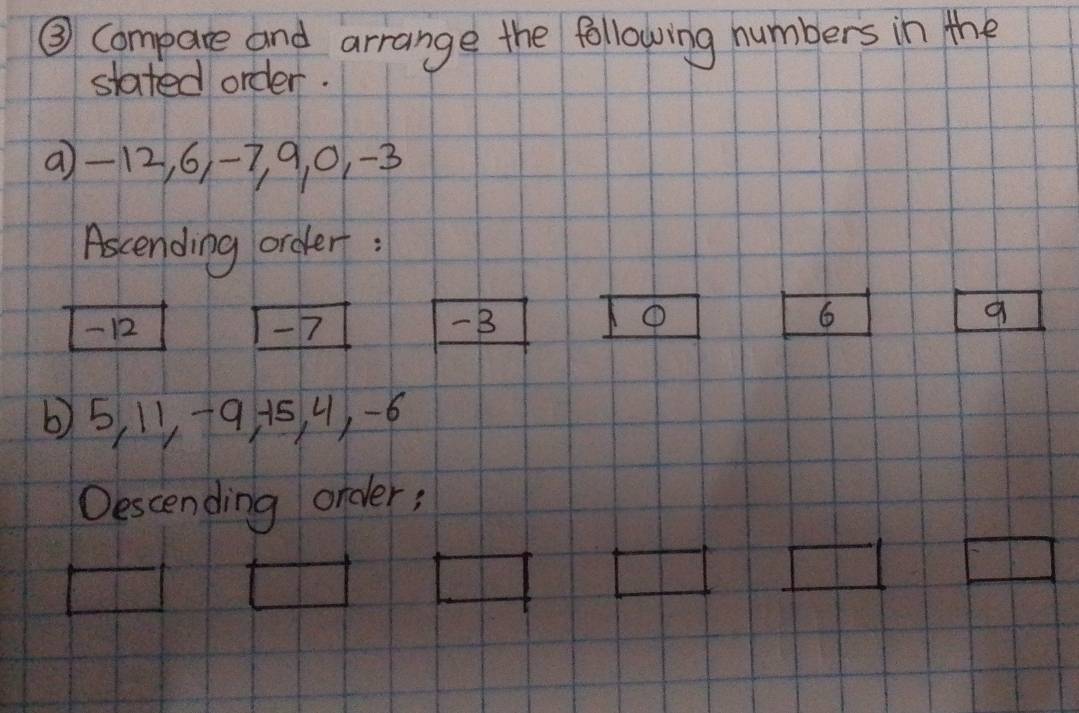 ③ Compare and arrange the following numbers in the
stated order.
a) -12, 6, -7, 9, 0, -3
Ascending order :
-12 -7 -3 0 6 9
b) 5, 11, -9, -15, 4, -6
Descending order :